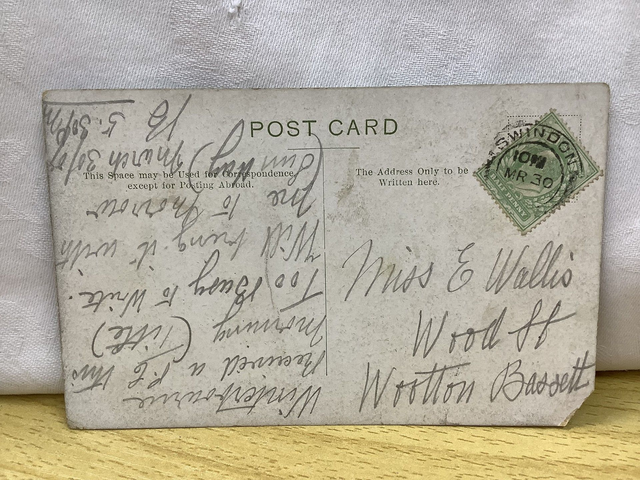 POST CARD
This Space may be Used for Correspondence
except for Posting Abroad.
The Address Only to be
Written here.
SWINDON
MR 30
Miss E Wallis
Wood St
Wootton Bassett
Winterbourne
Received a P.C this
morning
Too Busy to Write.
Will bring it with
me to morrow
(Sunday) March 30/07
5.30 P.M